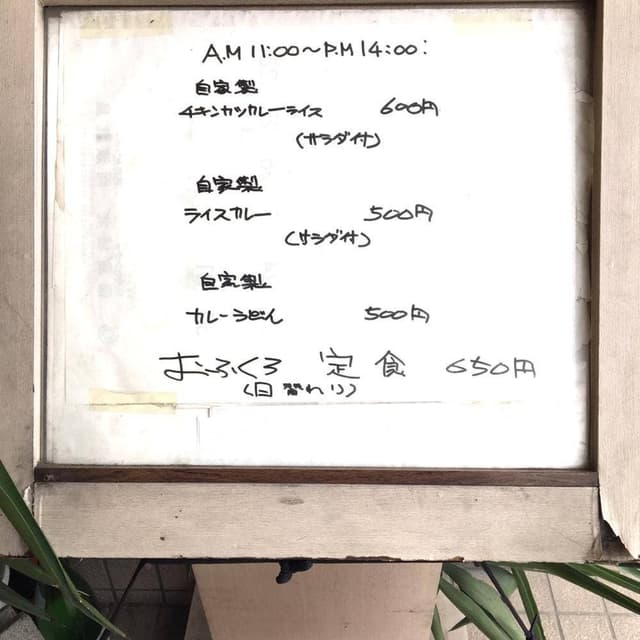 A.M 11:00〜P.M 14:00:
自家製
チキンカツカレーライス 600円
(サラダ付)
自家製
ライスカレー 500円
(サラダ付)
自家製
カレーうどん 500円
おふくろ 定食 650円
(日替わり)